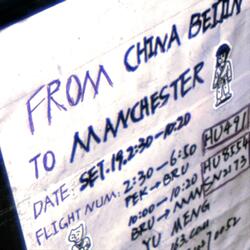 FROM CHINA BEIJIN
TO MANCHESTER
DATE: SET.19.2:30-10:20
FLIGHT NUM: 2:30-6:50 HU491
PEK → BRU HU8554
10:00-10:20 SN2173
BRU → MAN
YU MENG